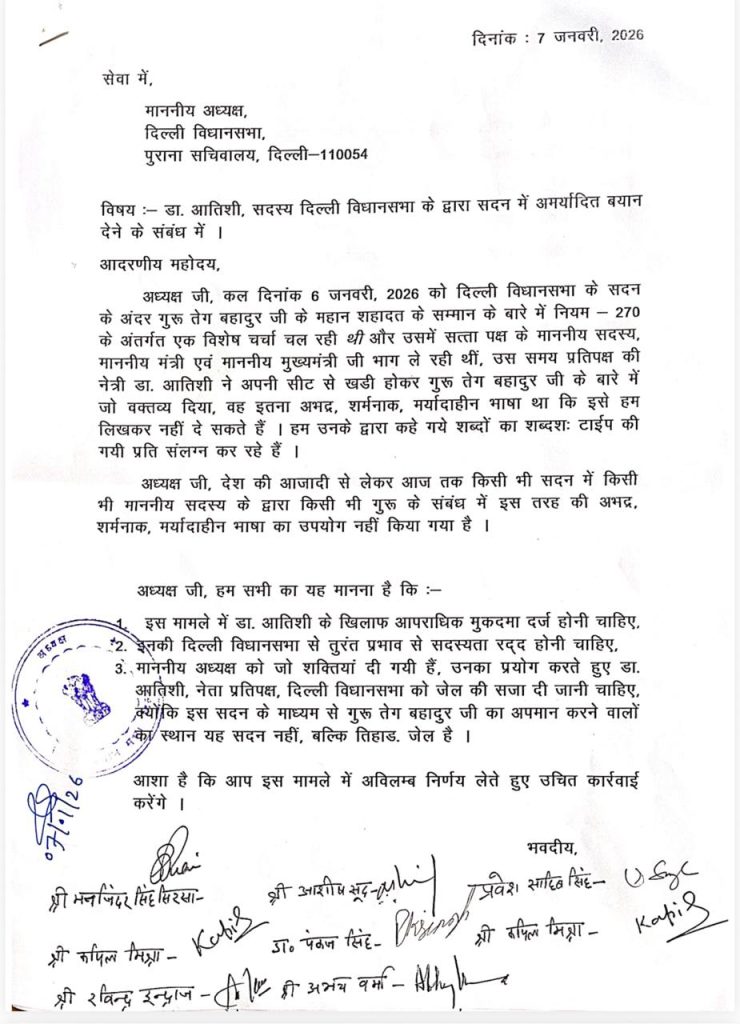 दिनांक : 7 जनवरी, 2026
सेवा में,
माननीय अध्यक्ष,
दिल्ली विधानसभा,
पुराना सचिवालय, दिल्ली–110054
विषय :– डा. आतिशी, सदस्य दिल्ली विधानसभा के द्वारा सदन में अमर्यादित बयान
देने के संबंध में ।
आदरणीय महोदय,
अध्यक्ष जी, कल दिनांक 6 जनवरी, 2026 को दिल्ली विधानसभा के सदन
के अंदर गुरू तेग बहादुर जी के महान शहादत के सम्मान के बारे में नियम – 270
के अंतर्गत एक विशेष चर्चा चल रही थी और उसमें सत्ता पक्ष के माननीय सदस्य,
माननीय मंत्री एवं माननीय मुख्यमंत्री जी भाग ले रही थीं, उस समय प्रतिपक्ष की
नेत्री डा. आतिशी ने अपनी सीट से खडी होकर गुरू तेग बहादुर जी के बारे में
जो वक्तव्य दिया, वह इतना अभद्र, शर्मनाक, मर्यादाहीन भाषा था कि इसे हम
लिखकर नहीं दे सकते हैं । हम उनके द्वारा कहे गये शब्दों का शब्दशः टाईप की
गयी प्रति संलग्न कर रहे हैं ।
अध्यक्ष जी, देश की आजादी से लेकर आज तक किसी भी सदन में किसी
भी माननीय सदस्य के द्वारा किसी भी गुरू के संबंध में इस तरह की अभद्र,
शर्मनाक, मर्यादाहीन भाषा का उपयोग नहीं किया गया है ।
अध्यक्ष जी, हम सभी का यह मानना है कि :–
1. इस मामले में डा. आतिशी के खिलाफ आपराधिक मुकदमा दर्ज होनी चाहिए,
2. इनकी दिल्ली विधानसभा से तुरंत प्रभाव से सदस्यता रद्द होनी चाहिए,
3. माननीय अध्यक्ष को जो शक्तियां दी गयी हैं, उनका प्रयोग करते हुए डा.
आतिशी, नेता प्रतिपक्ष, दिल्ली विधानसभा को जेल की सजा दी जानी चाहिए,
क्योंकि इस सदन के माध्यम से गुरू तेग बहादुर जी का अपमान करने वालों
का स्थान यह सदन नहीं, बल्कि तिहाड. जेल है ।
अध्यक्ष
आशा है कि आप इस मामले में अविलम्ब निर्णय लेते हुए उचित कार्रवाई
करेंगे ।
07/01/26
भवदीय,
श्री मनजिंदर सिंह सिरसा-
श्री आशीष सूद-
प्रवेश साहिब सिंह-
श्री कपिल मिश्रा - Kapil
डा० पंकज सिंह-
श्री कपिल मिश्रा - Kapil
श्री रविन्द्र इन्द्राज -
श्री अभय वर्मा -